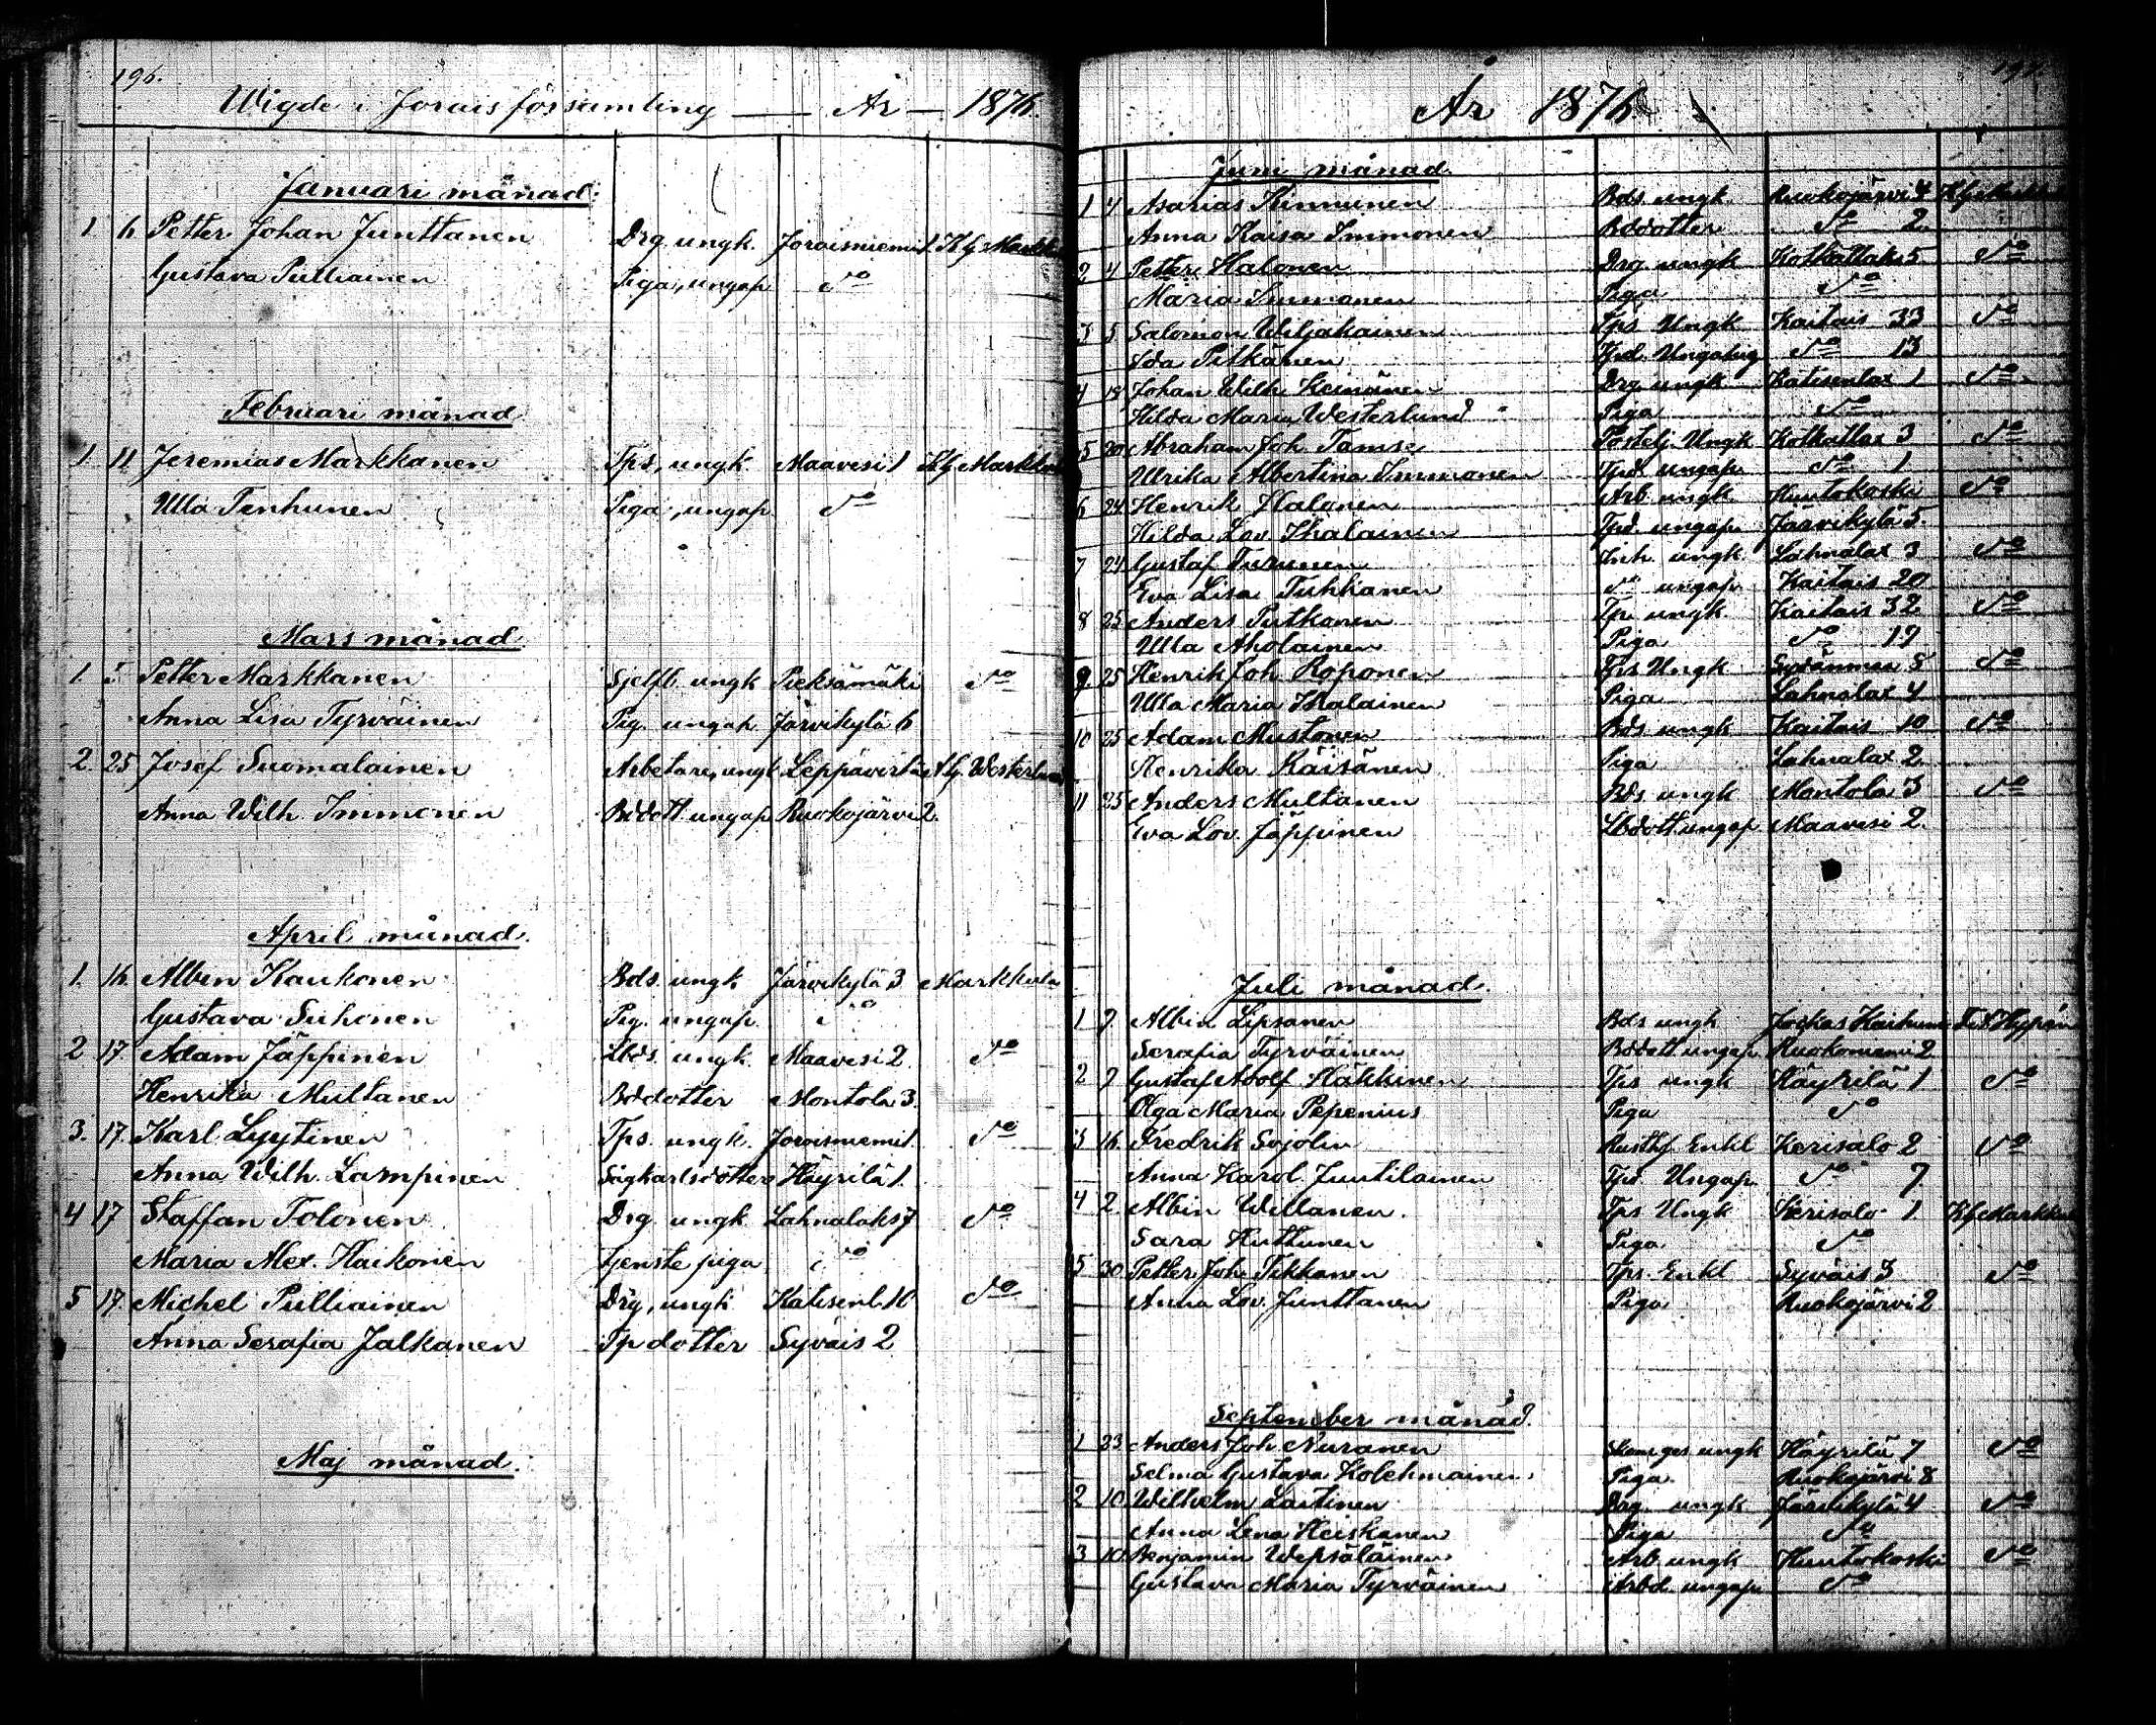 196.
Wigde i Jorois församling — År — 1876.
Januari månad.
1 6 Petter Johan Junttanen Drg. ungk. Joroisniemi 1. Kf Markk
Gustava Pulliainen Piga, ungqp do
Februari månad
1. 11 Jeremias Markkanen Tps, ungk. Maavesi 1 Kf Markk
Ulla Tenhunen Piga, ungqp do
Mars månad
1. 5 Petter Markkanen Sjelfb. ungk Pieksämäki do
Anna Lisa Tyrväinen Pig. ungqp. Järvikylä 6
2. 25 Josef Suomalainen Arbetare, ungk Leppävirta Westerlund
Anna Wilh. Immonen Bddott. ungqp Ruokojärvi 2.
April månad.
1. 16. Albin Kaukonen Bds. ungk Järvikylä 3 Markkula
Gustava Suhonen Pig. ungqp. do
2 17 Adam Jäppinen Lbds. ungk. Maavesi 2. do
Henrika Multanen Bddotter Montola 3.
3. 17. Karl Lyytinen Tps. ungk. Joroisniemi 1. do
Anna Wilh. Lampinen Häyrilä 1.
4 17 Staffan Tolonen Drg. ungk Lahnalaks 7 do
Maria Alex. Haikonen tjenste piga do
5 17. Michel Pulliainen Drg, ungk Katisenl. 16 do
Anna Serafia Jalkanen Tp dotter Syväis 2
Maj månad.
197.
År 1876.
Juni månad.
1 4 Asarias Kinnunen Bds. ungk Ruokojärvi 4
Anna Kaisa Immonen Bddotter do 2.
2 4 Petter Halonen Drg. ungk Kotkatlaks 5 do
Maria Immonen Piga do
3 5 Salomon Wiljakainen Tps Ungk Kaitais 33 do
Ida Pitkänen do 13
4 18 Johan Wilh. Heinänen Drg. ungk Katisenlax 1 do
Hilda Maria Westerlund Piga do
5 20 Abraham Joh. Tamse Ungk Kotkatlax 3 do
Ulrika Albertina Immonen Tpd. ungqp. do 1
6 24 Henrik Halonen Arb. ungk Huutokoski do
Hilda Lov. Ihalainen Tpd. ungqp. Järvikylä 5.
7 24 Gustaf Turunen Inh. ungk. Lahnalax 3 do
Eva Lisa Tuhkanen do ungqp. Kaitais 20
8 25 Anders Putkonen Tps ungk. Kaitais 32 do
Ulla Aholainen Piga do 19
9. 25 Henrik Joh. Roponen Tps Ungk Sydänmaa 8 do
Ulla Maria Ihalainen Piga Lahnalax 4
10 25 Adam Mustonen Bds. ungk Kaitais 10 do
Henrika Räisänen Piga Lahnalax 2.
11 25 Anders Multanen Bds. ungk Montola 3 do
Eva Lov. Jäppinen Lbdott. ungqp. Maavesi 2.
Juli månad.
1 2. Albin Lipsanen Bds ungk Jockas
Serafia Tyrväinen Bddott. ungqp. Ruokoniemi 2
2 2 Gustaf Adolf Häkkinen Tps ungk Häyrilä 1 do
Olga Maria Pepenius Piga do
3 16. Fredrik Sojolin Rusthf. Enkl Kerisalo 2 do
Anna Karol. Juutilainen Tpd Ungqp. do 7.
4 2. Albin Willanen. Tps Ungk Kerisalo 1. Kf Markk
Sara Huttunen Piga do
5 30 Petter Joh. Tikkanen Tps. Enkl Syväis 3 do
Anna Lov. Junttanen Piga Ruokojärvi 2
September månad.
1 23 Anders Joh. Nuranen ungk Häyrilä 7 do
Selma Gustava Kolehmainen Piga. Ruokojärvi 8
2 10 Wilhelm Laitinen Drg. ungk Järvikylä 4 do
Anna Lena Heiskanen Piga do
3 10 Benjamin Wepsäläinen Arb. ungk Huutokoski do
Gustava Maria Tyrväinen Arbd. ungqp. do